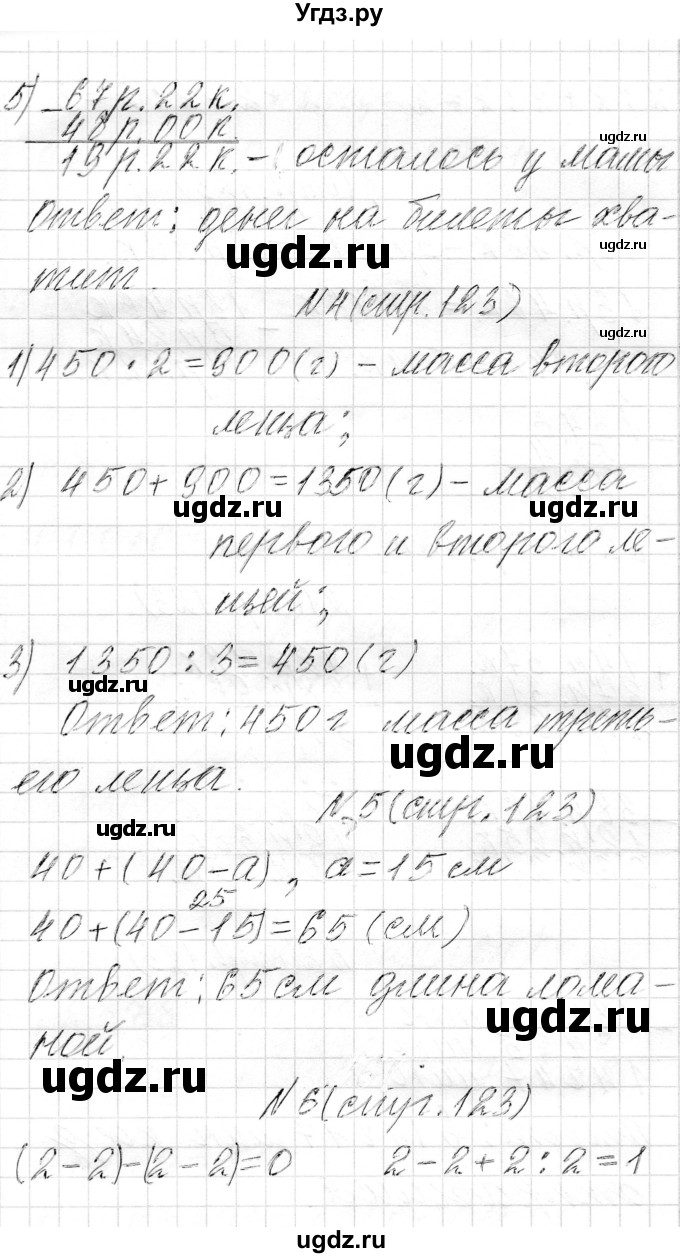 Угдз.ру
5) _ 67 р. 22 к.
48 р. 00 к.
19 р. 22 к. - осталось у мамы
ugdz.ru
Ответ: денег на билеты хва-
ugdz.ru
ugdz.ru
тит.
N4 (стр. 123)
ugdz.ru
1) 450 · 2 = 900 (г) - масса второго
леща;
2) 450 + 900 = 1350 (г) - масса
ugdz.ru
ugdz.ru
первого и второго ле-
щей;
3) 1350 : 3 = 450 (г)
ugdz.ru
Ответ: 450 г масса треть-
ugdz.ru
его леща.
N5 (стр. 123)
ugdz.ru
40 + (40 - а), а = 15 см
25
40 + (40 - 15) = 65 (см)
Ответ: 65 см длина лома-
ugdz.ru
ной.
ugdz.ru
N6 (стр. 123)
(2 - 2) - (2 - 2) = 0 2 - 2 + 2 : 2 = 1
ugdz.ru